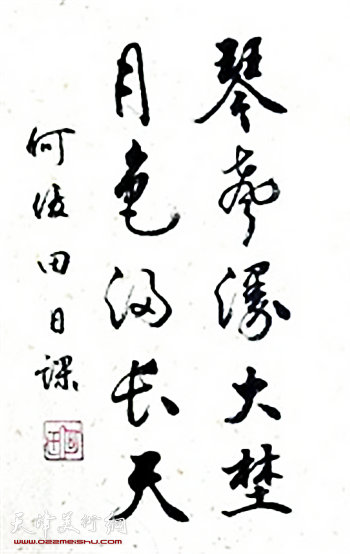 琴聲漫大埜
月色滿长天
何俊田日課
天津美术网
www.022meishu.com